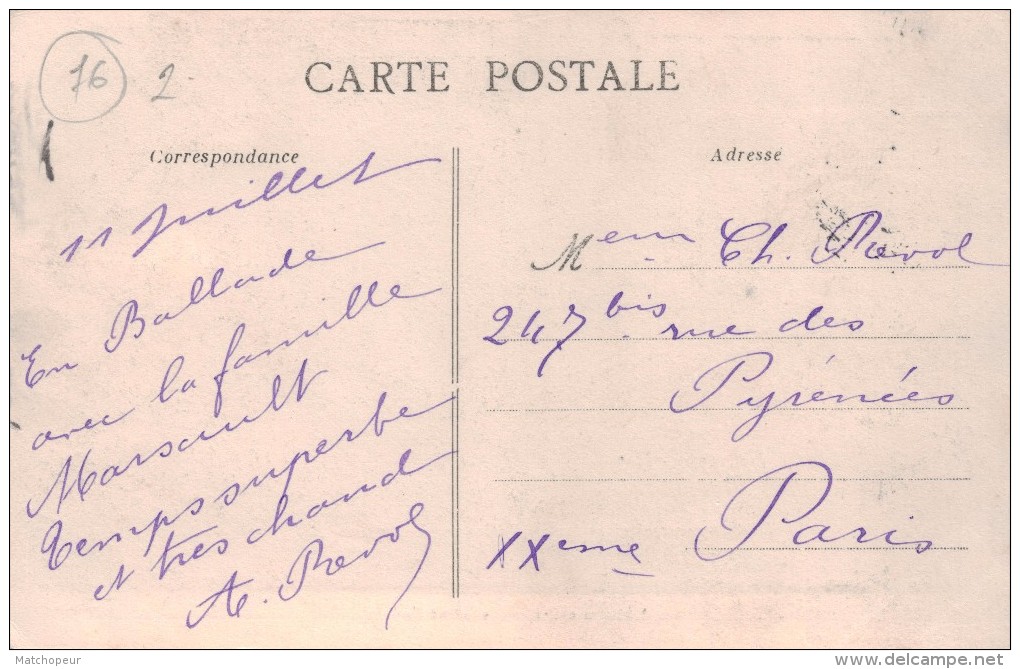 76
2
CARTE POSTALE
Correspondance
11 Juillet
En Ballade
avec la famille
Marsault
Temps superbe
et très chaud
A. Revol
Adresse
Mem Ch. Revol
247 bis rue des
Pyrénées
Paris
XXeme
Matchopeur
delcampe.net